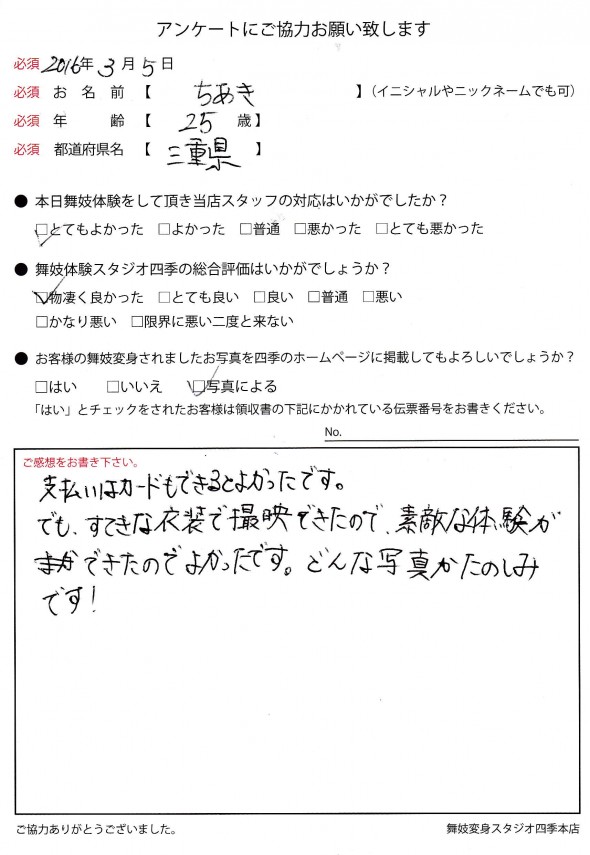 アンケートにご協力お願い致します
必須 2016年 3月 5日
必須 お名前【 ちあき 】(イニシャルやニックネームでも可)
必須 年齢【 25 歳】
必須 都道府県名【 三重県 】
● 本日舞妓体験をして頂き当店スタッフの対応はいかがでしたか?
☑とてもよかった □よかった □普通 □悪かった □とても悪かった
● 舞妓体験スタジオ四季の総合評価はいかがでしょうか?
☑物凄く良かった □とても良い □良い □普通 □悪い
□かなり悪い □限界に悪い二度と来ない
● お客様の舞妓変身されましたお写真を四季のホームページに掲載してもよろしいでしょうか?
□はい □いいえ ☑写真による
「はい」とチェックをされたお客様は領収書の下記にかかれている伝票番号をお書きください。
No.
ご感想をお書き下さい。
支払いはカードもできるとよかったです。
でも、すてきな衣装で撮映できたので、素敵な体験が
できたのでよかったです。どんな写真かたのしみ
です!
ご協力ありがとうございました。
舞妓変身スタジオ四季本店